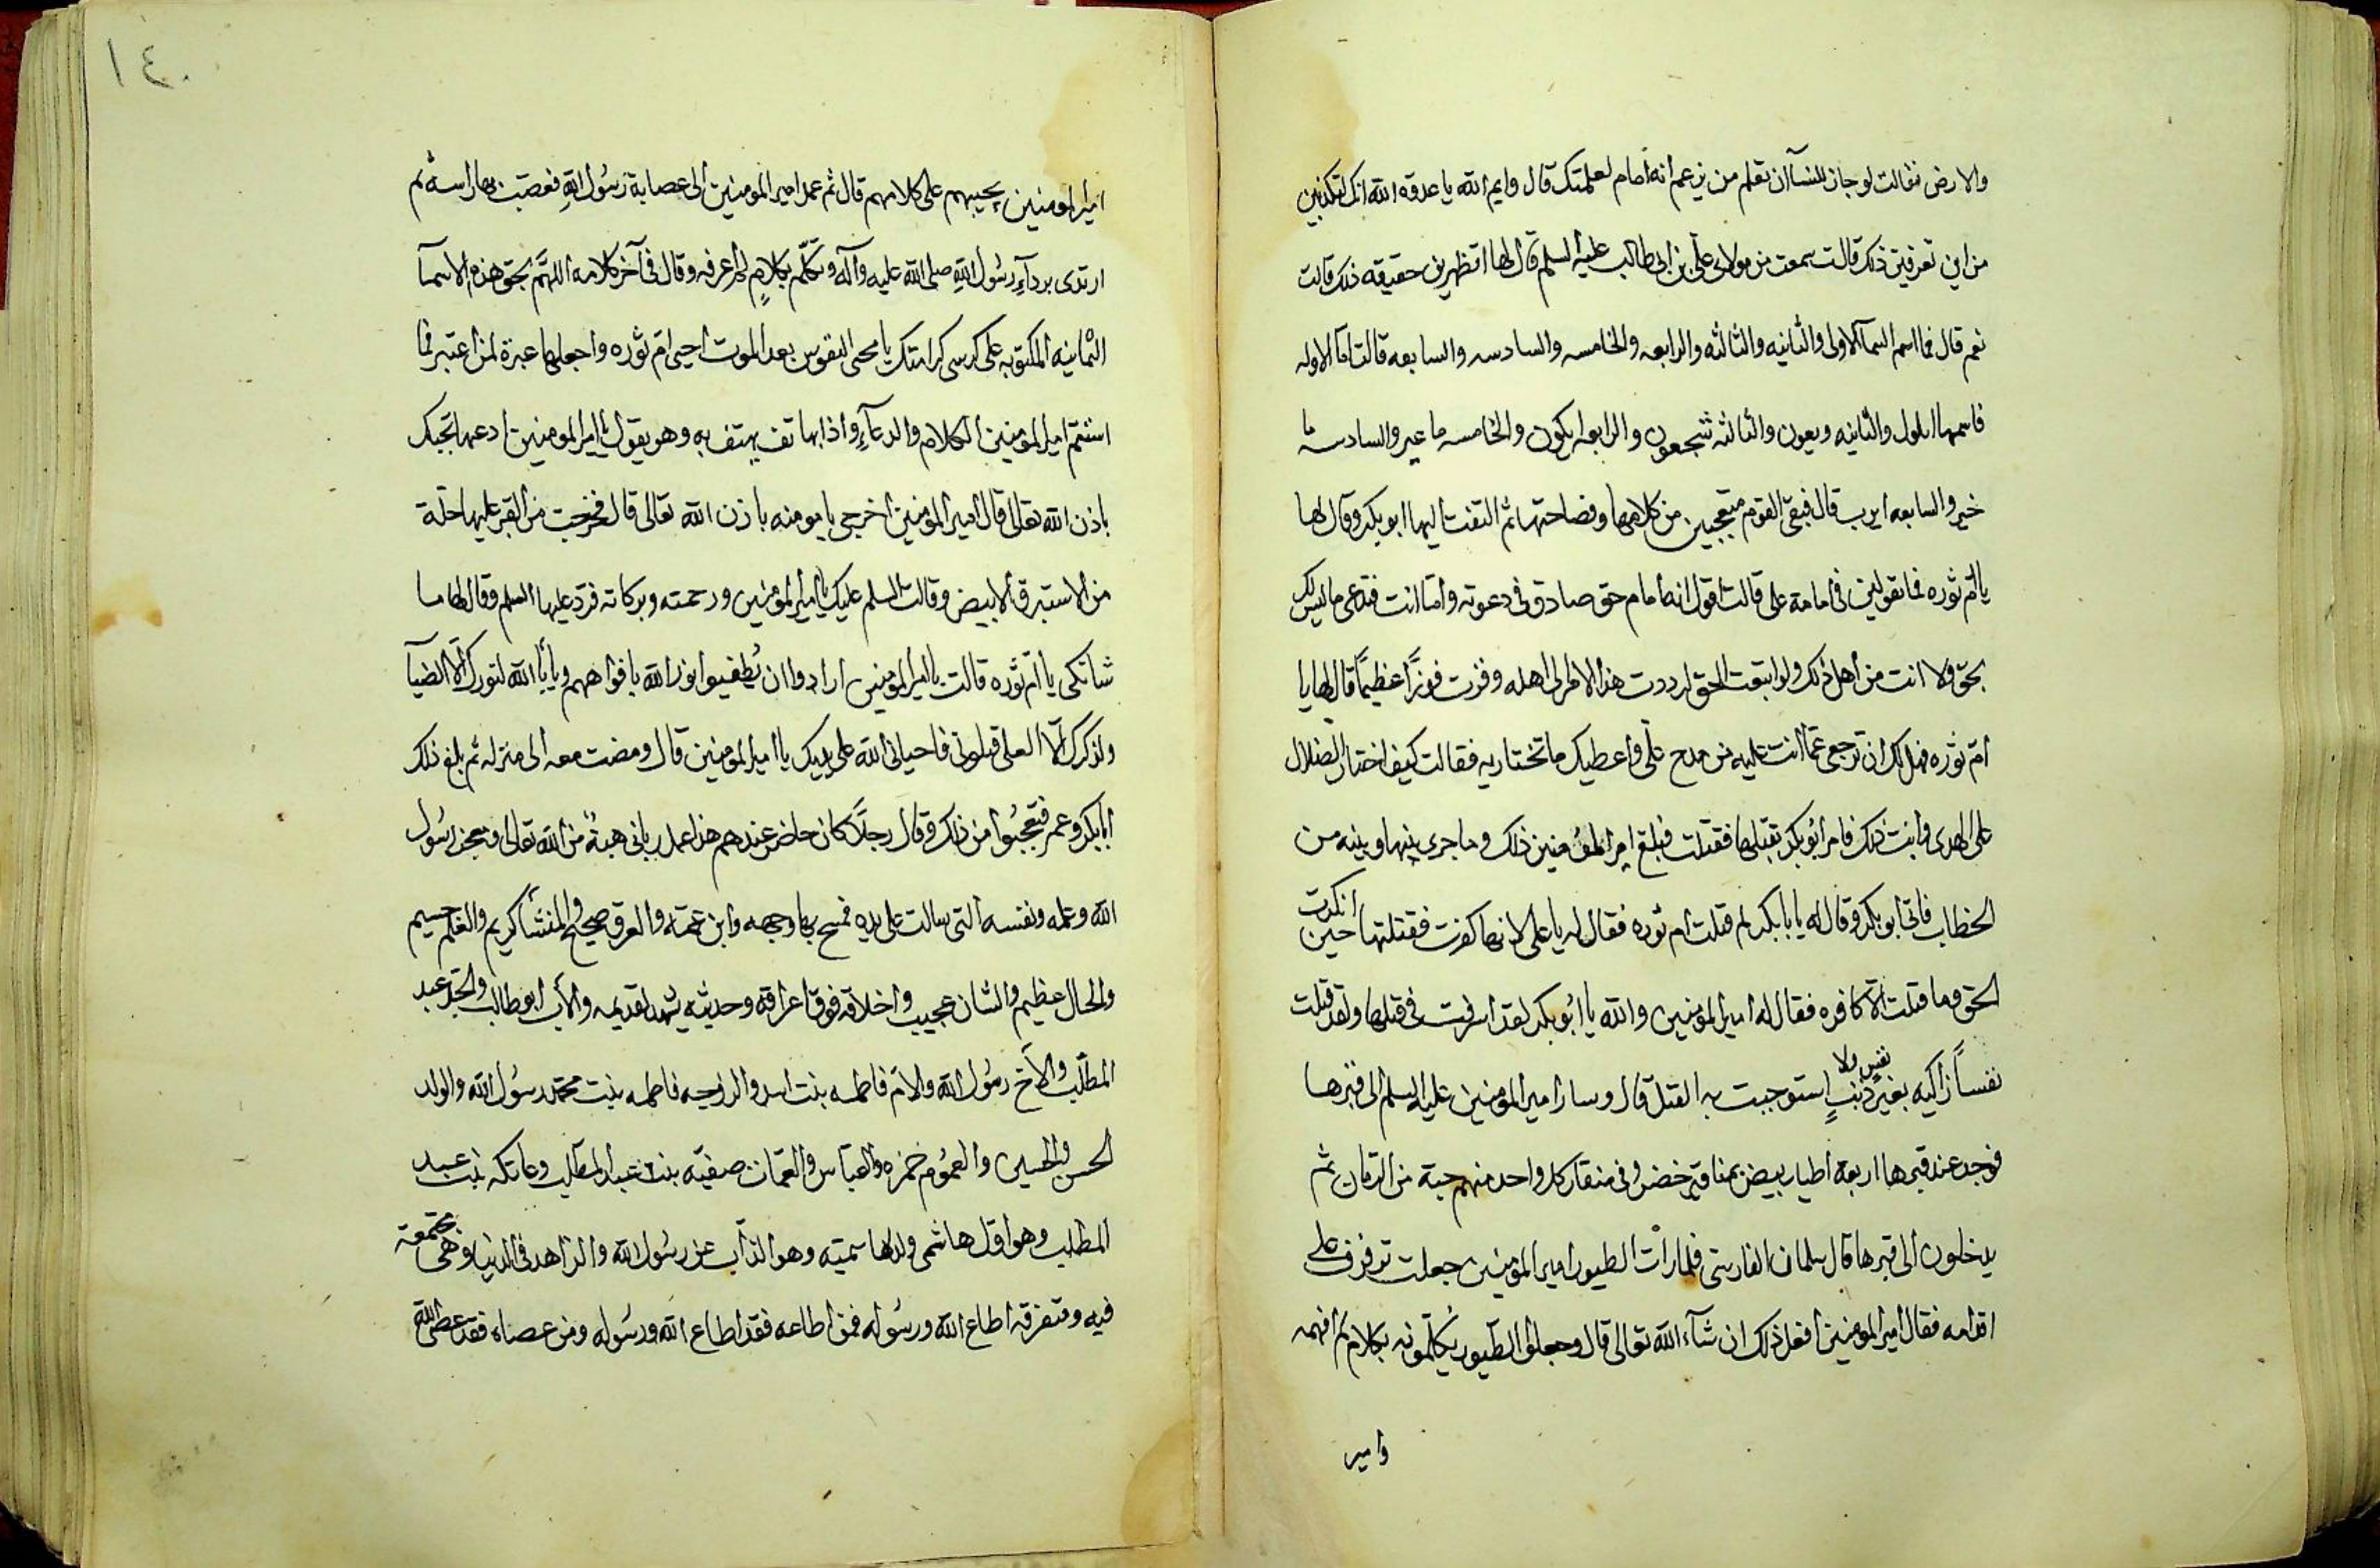 والارض فقالت لو جاز للنسآ ان تعلم من يزعم انه امام لعلمتك قال وايم الله يا عدوه الله انك لتكذبين
من اين تعرفين ذلك قالت سمعت من مولاى على بن ابى طالب عليه السلم قال لها اتظهرين حقيقه ذلك قالت
نعم قال فما اسم السمآ الاولى والثانيه والثالثه والرابعه والخامسه والسادسه والسابعه قالت اما الاوله
فاسمها ايلول والثانيه وبعون والثالثه والرابعه والخامسه ما عير والسادسه ما
خير والسابعه ايرب قال فبقى القوم متعجبين من كلامها وفصاحتها ثم التفت اليها ابو بكر وقال لها
يا ام ثوره فما تقولين فى امامة على قالت اقول انه امام حق صادق فى دعوته واما انت فتدعى ما ليس لك
بحق ولا انت من اهل ذلك ولو اتبعت الحق لرددت هذا الامر الى اهله وفزت فوزًا عظيمًا قال لها يا
ام ثوره فهل لك ان ترجعى عما انت عليه من مدح على واعطيك ما تختاريه فقالت كيف اختار الضلال
على الهدى وابت ذلك فامر ابو بكر بقتلها فقتلت فبلغ امير المؤمنين ذلك وما جرى بينها وبينه من
الخطاب فاتى ابو بكر وقال له يا با بكر لم قتلت ام ثوره فقال له يا على لانها كفرت فقتلتها حين انكرت
الحق وما قتلت الا كافره فقال له امير المؤمنين والله يا ابو بكر لقد اسرفت فى قتلها ولقد قتلت
نفسًا زاكيه بغير نفس ولا ذنبٍ استوجبت به القتل قال وسار امير المؤمنين عليه السلم الى قبرها
فوجد عند قبرها اربعة اطيار بيض بمناقير خضر وفى منقار كل واحد منهم حبة من الرمان ثم
يدخلون الى قبرها قال سلمان الفارسى فلما رأت الطيور امير المؤمنين جعلت ترفرف على
اقدامه فقال امير المؤمنين افعل ذلك ان شآء الله تعالى قال وجعلوا الطيور يكلمونه بكلام لم افهمه
وامير
١٤٠
امير المومنين يجيبهم على كلامهم قال ثم عمد امير المومنين الى عصابة رسُول الله فعصب بها راسه ثم
ارتدى بردآءِ رسُول اللهِ صلى الله عليه وآله وتكلّم بكلامٍ لم اعرفه وقال فى آخر كلامه اللهمّ بحق هذه الاسمآ
الثمانيه المكتوبه على كرسى كرامتك يا محيى النفوس بعد الموت احيى ام ثوره واجعلها عبرة لمن اعتبر فما
استتم امير المومنين الكلام والدعآءِ واذا بهاتف يهتف به وهو يقول يا امير المومنين ادعها تجبك
باذن الله تعالى قال امير المومنين اخرجى يا مومنه باذن الله تعالى قال فخرجت من القبر عليها حلة
من الاستبرق الابيض وقالت السلم عليك يا امير المؤمنين ورحمته وبركاته فرد عليها السلم وقال لها ما
شانكى يا ام ثوره قالت يا امير المؤمنين ارادوا ان يُطفيوا نور الله بافواههم ويأبا الله لنورك الا الضيآ
ولذكرك الا العلى قتلونى فاحيانى الله على يديك يا امير المومنين قال ومضت معه الى منزله ثم بلغ ذلك
ابابكر وعمر فتعجبُوا من ذلك وقال رجلًا كان حاضر عندهم هذا عمل ربانى هبةٌ من الله تعالى رسُول
الله وعلمه ونفسه التى سالت على يده فمسح بها وجهه وابن عمه والعرق صحيح والمنشأ كريم والعلم جسيم
والحال عظيم والشان عجيب واخلاقه فوق اعراقه وحديثه يشهد لقديمه والأب ابو طالب والجد عبد
المطلب والأخ رسُول الله والام فاطمه بنت اسد والزوجه فاطمه بنت محمد رسُول الله والولد
الحسن والحسين والعمُوم حمزه والعباس والعمّات صفيّه بنت عبد المطلب وعاتكه بنت عبد
المطلب وهو اول هاشمى ولد لهاشميته وهو الذاب عن رسُول الله والزاهد فى الدنيا وهى مجتمعة
فيه ومتفرقه اطاع الله ورسُوله فمن اطاعه فقد اطاع الله ورسُوله ومن عصاه فقد عصى الله